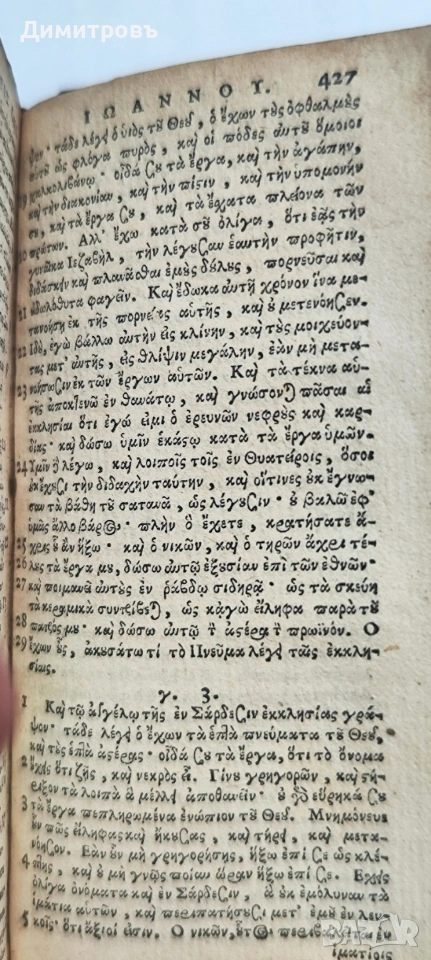 Димитровъ
ΙΩΑΝΝΟΥ. 427
ψον· τάδε λέγει ὁ υἱὸς τοῦ Θεοῦ, ὁ ἔχων τοὺς ὀφθαλμοὺς
αὑτοῦ ὡς φλόγα πυρὸς, καὶ οἱ πόδες αὐτοῦ ὅμοιοι
19 χαλκολιβάνῳ· οἶδά σου τὰ ἔργα, καὶ τὴν ἀγάπην,
καὶ τὴν διακονίαν, καὶ τὴν πίστιν, καὶ τὴν ὑπομονήν
σου, καὶ τὰ ἔργα σου, καὶ τὰ ἔσχατα πλείονα τῶν
20 πρώτων. Ἀλλ' ἔχω κατὰ σοῦ ὀλίγα, ὅτι ἐᾷς τὴν
γυναῖκα Ἰεζαβὴλ, τὴν λέγουσαν ἑαυτὴν προφῆτιν,
διδάσκειν καὶ πλανᾶσθαι ἐμοὺς δούλους, πορνεῦσαι καὶ
21 εἰδωλόθυτα φαγεῖν. Καὶ ἔδωκα αὐτῇ χρόνον ἵνα με-
τανοήσῃ ἐκ τῆς πορνείας αὑτῆς, καὶ οὐ μετενόησεν.
22 Ἰδοὺ, ἐγὼ βάλλω αὐτὴν εἰς κλίνην, καὶ τοὺς μοιχεύον-
τας μετ' αὐτῆς, εἰς θλίψιν μεγάλην, ἐὰν μὴ μετα-
23 νοήσωσιν ἐκ τῶν ἔργων αὑτῶν. Καὶ τὰ τέκνα αὐ-
τῆς ἀποκτενῶ ἐν θανάτῳ, καὶ γνώσονται πᾶσαι αἱ
ἐκκλησίαι ὅτι ἐγώ εἰμι ὁ ἐρευνῶν νεφροὺς καὶ καρ-
δίας· καὶ δώσω ὑμῖν ἑκάστῳ κατὰ τὰ ἔργα ὑμῶν.
24 Ὑμῖν δὲ λέγω, καὶ λοιποῖς τοῖς ἐν Θυατείροις, ὅσοι
οὐκ ἔχουσι τὴν διδαχὴν ταύτην, καὶ οἵτινες οὐκ ἔγνω-
σαν τὰ βάθη τοῦ σατανᾶ, ὡς λέγουσιν· οὐ βαλῶ ἐφ'
ὑμᾶς ἄλλο βάρος· πλὴν ὃ ἔχετε, κρατήσατε ἄ-
25 χρις οὗ ἂν ἥξω· καὶ ὁ νικῶν, καὶ ὁ τηρῶν ἄχρι τέ-
26 λους τὰ ἔργα μου, δώσω αὐτῷ ἐξουσίαν ἐπὶ τῶν ἐθνῶν·
27 καὶ ποιμανεῖ αὐτοὺς ἐν ῥάβδῳ σιδηρᾷ· ὡς τὰ σκεύη
τὰ κεραμικὰ συντρίβεται, ὡς κἀγὼ εἴληφα παρὰ τοῦ
28 πατρός μου· καὶ δώσω αὐτῷ τὸν ἀστέρα τὸν πρωϊνόν. Ὁ
29 ἔχων οὖς, ἀκουσάτω τί τὸ Πνεῦμα λέγει ταῖς ἐκκλη-
σίαις.
γ. 3.
1 Καὶ τῷ ἀγγέλῳ τῆς ἐν Σάρδεσιν ἐκκλησίας γρά-
ψον· τάδε λέγει ὁ ἔχων τὰ ἑπτὰ πνεύματα τοῦ Θεοῦ,
καὶ τοὺς ἑπτὰ ἀστέρας· οἶδά σου τὰ ἔργα, ὅτι τὸ ὄνομα
2 ἔχεις ὅτι ζῇς, καὶ νεκρὸς εἶ. Γίνου γρηγορῶν, καὶ στή-
ριξον τὰ λοιπὰ ἃ μέλλει ἀποθανεῖν· οὐ γὰρ εὕρηκά σου
3 τὰ ἔργα πεπληρωμένα ἐνώπιον τοῦ Θεοῦ. Μνημόνευε
οὖν πῶς εἴληφας καὶ ἤκουσας, καὶ τήρει, καὶ μετα-
νόησον. Ἐὰν οὖν μὴ γρηγορήσῃς, ἥξω ἐπί σε ὡς κλέ-
4 πτης, καὶ οὐ μὴ γνῷς ποίαν ὥραν ἥξω ἐπί σε. Ἔχεις
ὀλίγα ὀνόματα καὶ ἐν Σάρδεσιν, ἃ οὐκ ἐμόλυναν τὰ
ἱμάτια αὑτῶν, καὶ περιπατήσουσι μετ' ἐμοῦ ἐν λευ-
5 κοῖς· ὅτι ἄξιοί εἰσιν. Ὁ νικῶν, οὗτος περιβαλεῖται ἐν
ἱματίοις
BAZAR